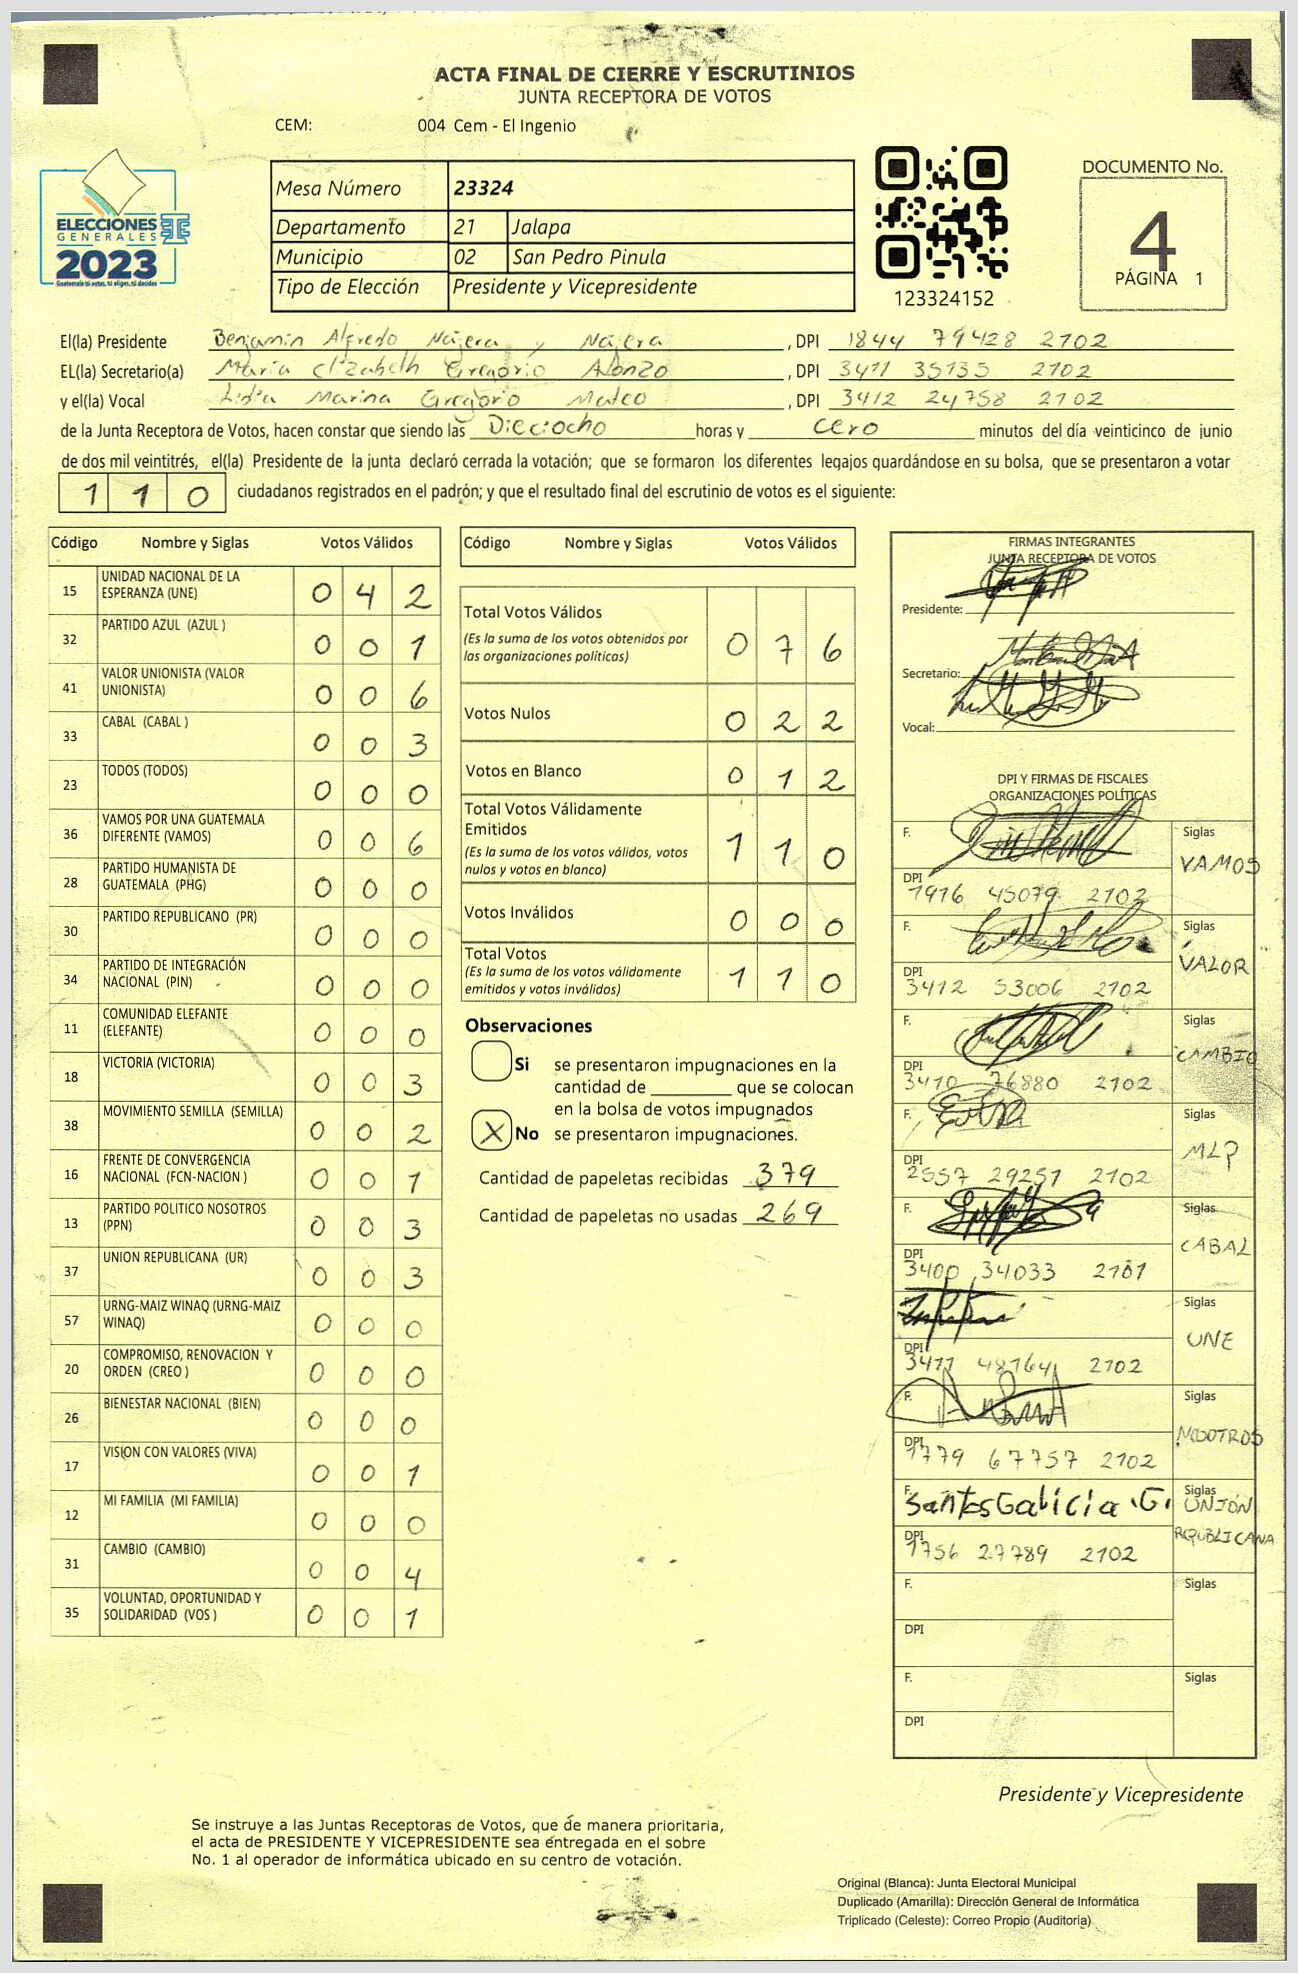 ACTA FINAL DE CIERRE Y ESCRUTINIOS
JUNTA RECEPTORA DE VOTOS
CEM: 004 Cem - El Ingenio
ELECCIONES
GENERALES
2023
Guatemala tú votas, tú eliges, tú decides
Mesa Número 23324
Departamento 21 Jalapa
Municipio 02 San Pedro Pinula
Tipo de Elección Presidente y Vicepresidente
123324152
DOCUMENTO No.
4
PÁGINA 1
El(la) Presidente Benjamin Alfredo Nájera y Nájera , DPI 1844 79428 2102
EL(la) Secretario(a) María Elizabeth Gregorio Alonzo , DPI 3411 35135 2102
y el(la) Vocal Lidia Marina Gregorio Mateo , DPI 3412 24758 2102
de la Junta Receptora de Votos, hacen constar que siendo las Dieciocho horas y cero minutos del día veinticinco de junio
de dos mil veintitrés, el(la) Presidente de la junta declaró cerrada la votación; que se formaron los diferentes legajos guardándose en su bolsa, que se presentaron a votar
1 1 0 ciudadanos registrados en el padrón; y que el resultado final del escrutinio de votos es el siguiente:
Código Nombre y Siglas Votos Válidos
15 UNIDAD NACIONAL DE LA
ESPERANZA (UNE) 0 4 2
32 PARTIDO AZUL (AZUL ) 0 0 1
41 VALOR UNIONISTA (VALOR
UNIONISTA) 0 0 6
33 CABAL (CABAL ) 0 0 3
23 TODOS (TODOS) 0 0 0
36 VAMOS POR UNA GUATEMALA
DIFERENTE (VAMOS) 0 0 6
28 PARTIDO HUMANISTA DE
GUATEMALA (PHG) 0 0 0
30 PARTIDO REPUBLICANO (PR) 0 0 0
34 PARTIDO DE INTEGRACIÓN
NACIONAL (PIN) 0 0 0
11 COMUNIDAD ELEFANTE
(ELEFANTE) 0 0 0
18 VICTORIA (VICTORIA) 0 0 3
38 MOVIMIENTO SEMILLA (SEMILLA) 0 0 2
16 FRENTE DE CONVERGENCIA
NACIONAL (FCN-NACION ) 0 0 1
13 PARTIDO POLITICO NOSOTROS
(PPN) 0 0 3
37 UNION REPUBLICANA (UR) 0 0 3
57 URNG-MAIZ WINAQ (URNG-MAIZ
WINAQ) 0 0 0
20 COMPROMISO, RENOVACION Y
ORDEN (CREO ) 0 0 0
26 BIENESTAR NACIONAL (BIEN) 0 0 0
17 VISION CON VALORES (VIVA) 0 0 1
12 MI FAMILIA (MI FAMILIA) 0 0 0
31 CAMBIO (CAMBIO) 0 0 4
35 VOLUNTAD, OPORTUNIDAD Y
SOLIDARIDAD (VOS ) 0 0 1
Código Nombre y Siglas Votos Válidos
Total Votos Válidos
(Es la suma de los votos obtenidos por
las organizaciones políticas) 0 7 6
Votos Nulos 0 2 2
Votos en Blanco 0 1 2
Total Votos Válidamente
Emitidos
(Es la suma de los votos válidos, votos
nulos y votos en blanco) 1 1 0
Votos Inválidos 0 0 0
Total Votos
(Es la suma de los votos válidamente
emitidos y votos inválidos) 1 1 0
Observaciones
Si se presentaron impugnaciones en la
cantidad de ________ que se colocan
en la bolsa de votos impugnados
X No se presentaron impugnaciones.
Cantidad de papeletas recibidas 379
Cantidad de papeletas no usadas 269
FIRMAS INTEGRANTES
JUNTA RECEPTORA DE VOTOS
Presidente:
Secretario:
Vocal:
DPI Y FIRMAS DE FISCALES
ORGANIZACIONES POLÍTICAS
F. Siglas
VAMOS
DPI
1916 45079 2102
F. Siglas
VALOR
DPI
3412 53006 2102
F. Siglas
CAMBIO
DPI
3410 76880 2102
F. Siglas
MLP
DPI
2557 29251 2102
F. Siglas
CABAL
DPI
3400 34033 2101
F. Siglas
UNE
DPI
3411 48164 2102
F. Siglas
NOSOTROS
DPI
1779 67757 2102
F. Santos Galicia G. Siglas
UNIÓN
REPUBLICANA
DPI
1756 27789 2102
F. Siglas
DPI
F. Siglas
DPI
Presidente y Vicepresidente
Se instruye a las Juntas Receptoras de Votos, que de manera prioritaria,
el acta de PRESIDENTE Y VICEPRESIDENTE sea entregada en el sobre
No. 1 al operador de informática ubicado en su centro de votación.
Original (Blanca): Junta Electoral Municipal
Duplicado (Amarilla): Dirección General de Informática
Triplicado (Celeste): Correo Propio (Auditoria)